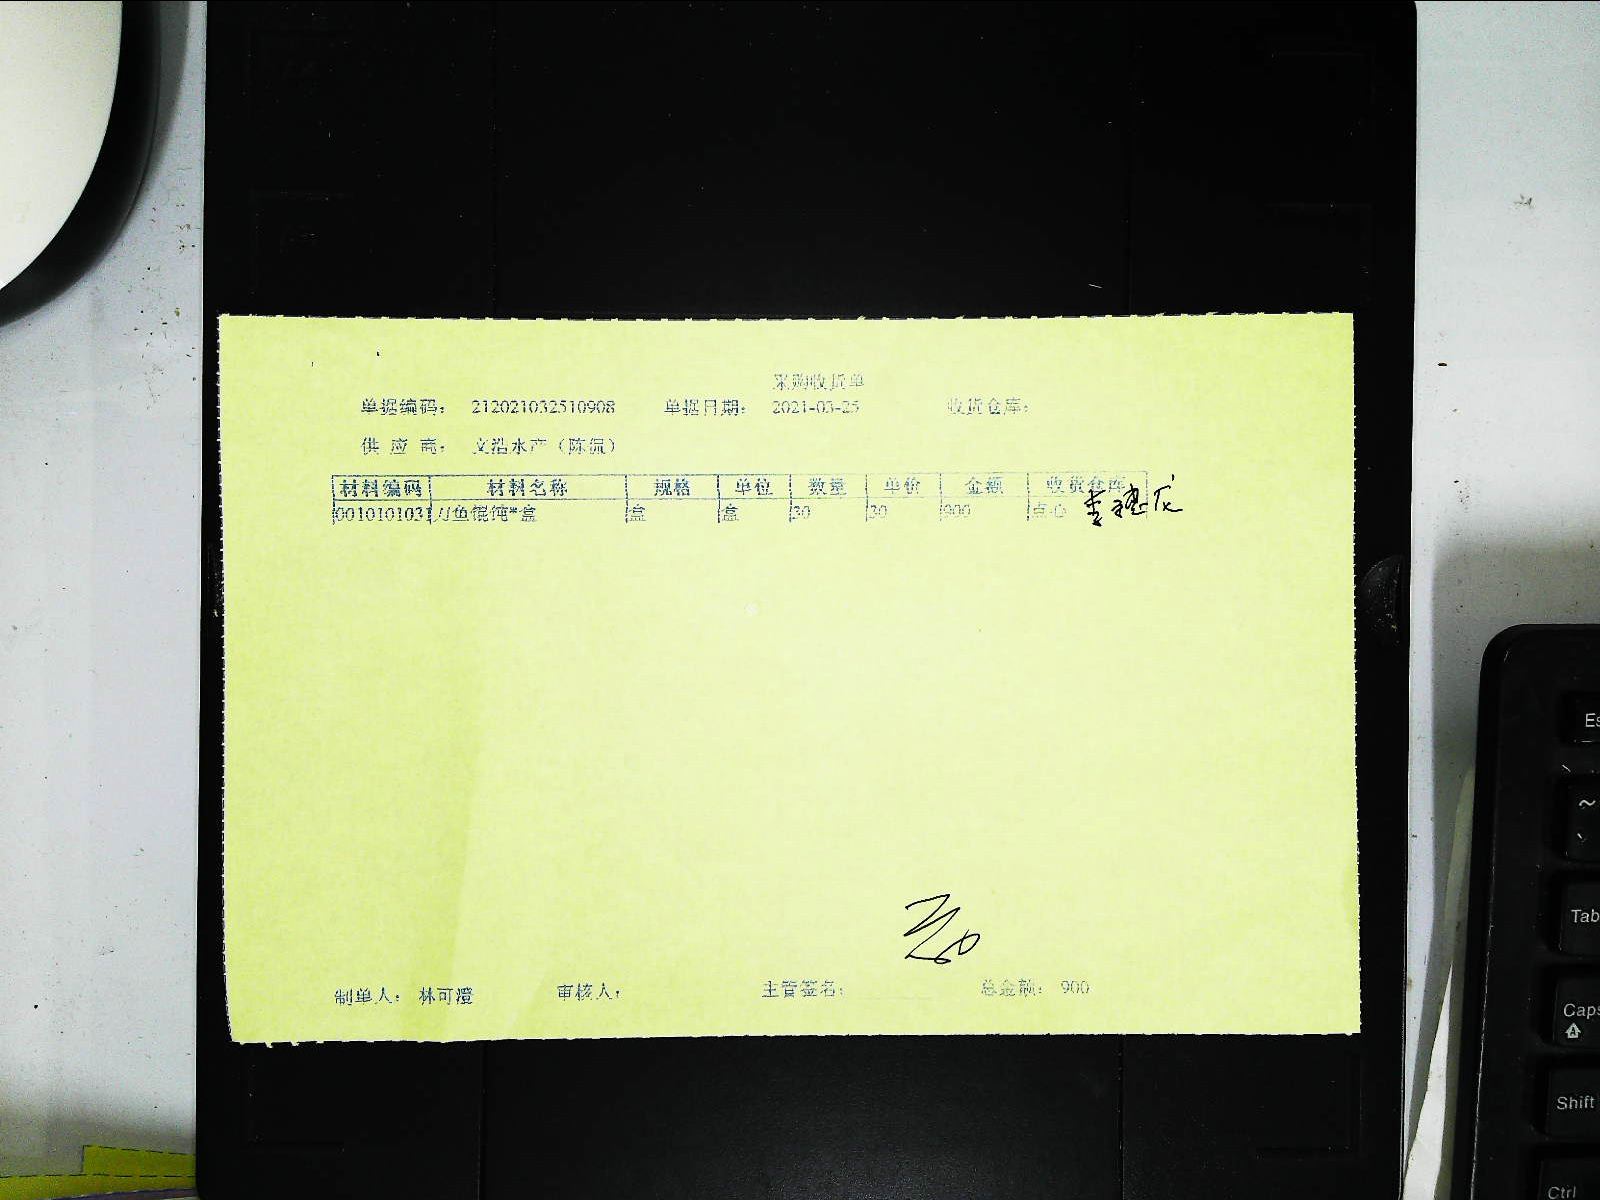 采购收货单
单据编码： 212021032510908 单据日期： 2021-03-25 收货仓库：
供 应 商： 文浩水产（陈侃）
材料编码 材料名称 规格 单位 数量 单价 金额 收货仓库
0010101031 刀鱼馄饨*盒 盒 盒 30 30 900 点心
制单人： 林可澄 审核人： 主管签名： 总金额： 900
Es
~
Tab
Caps
Shift
Ctrl